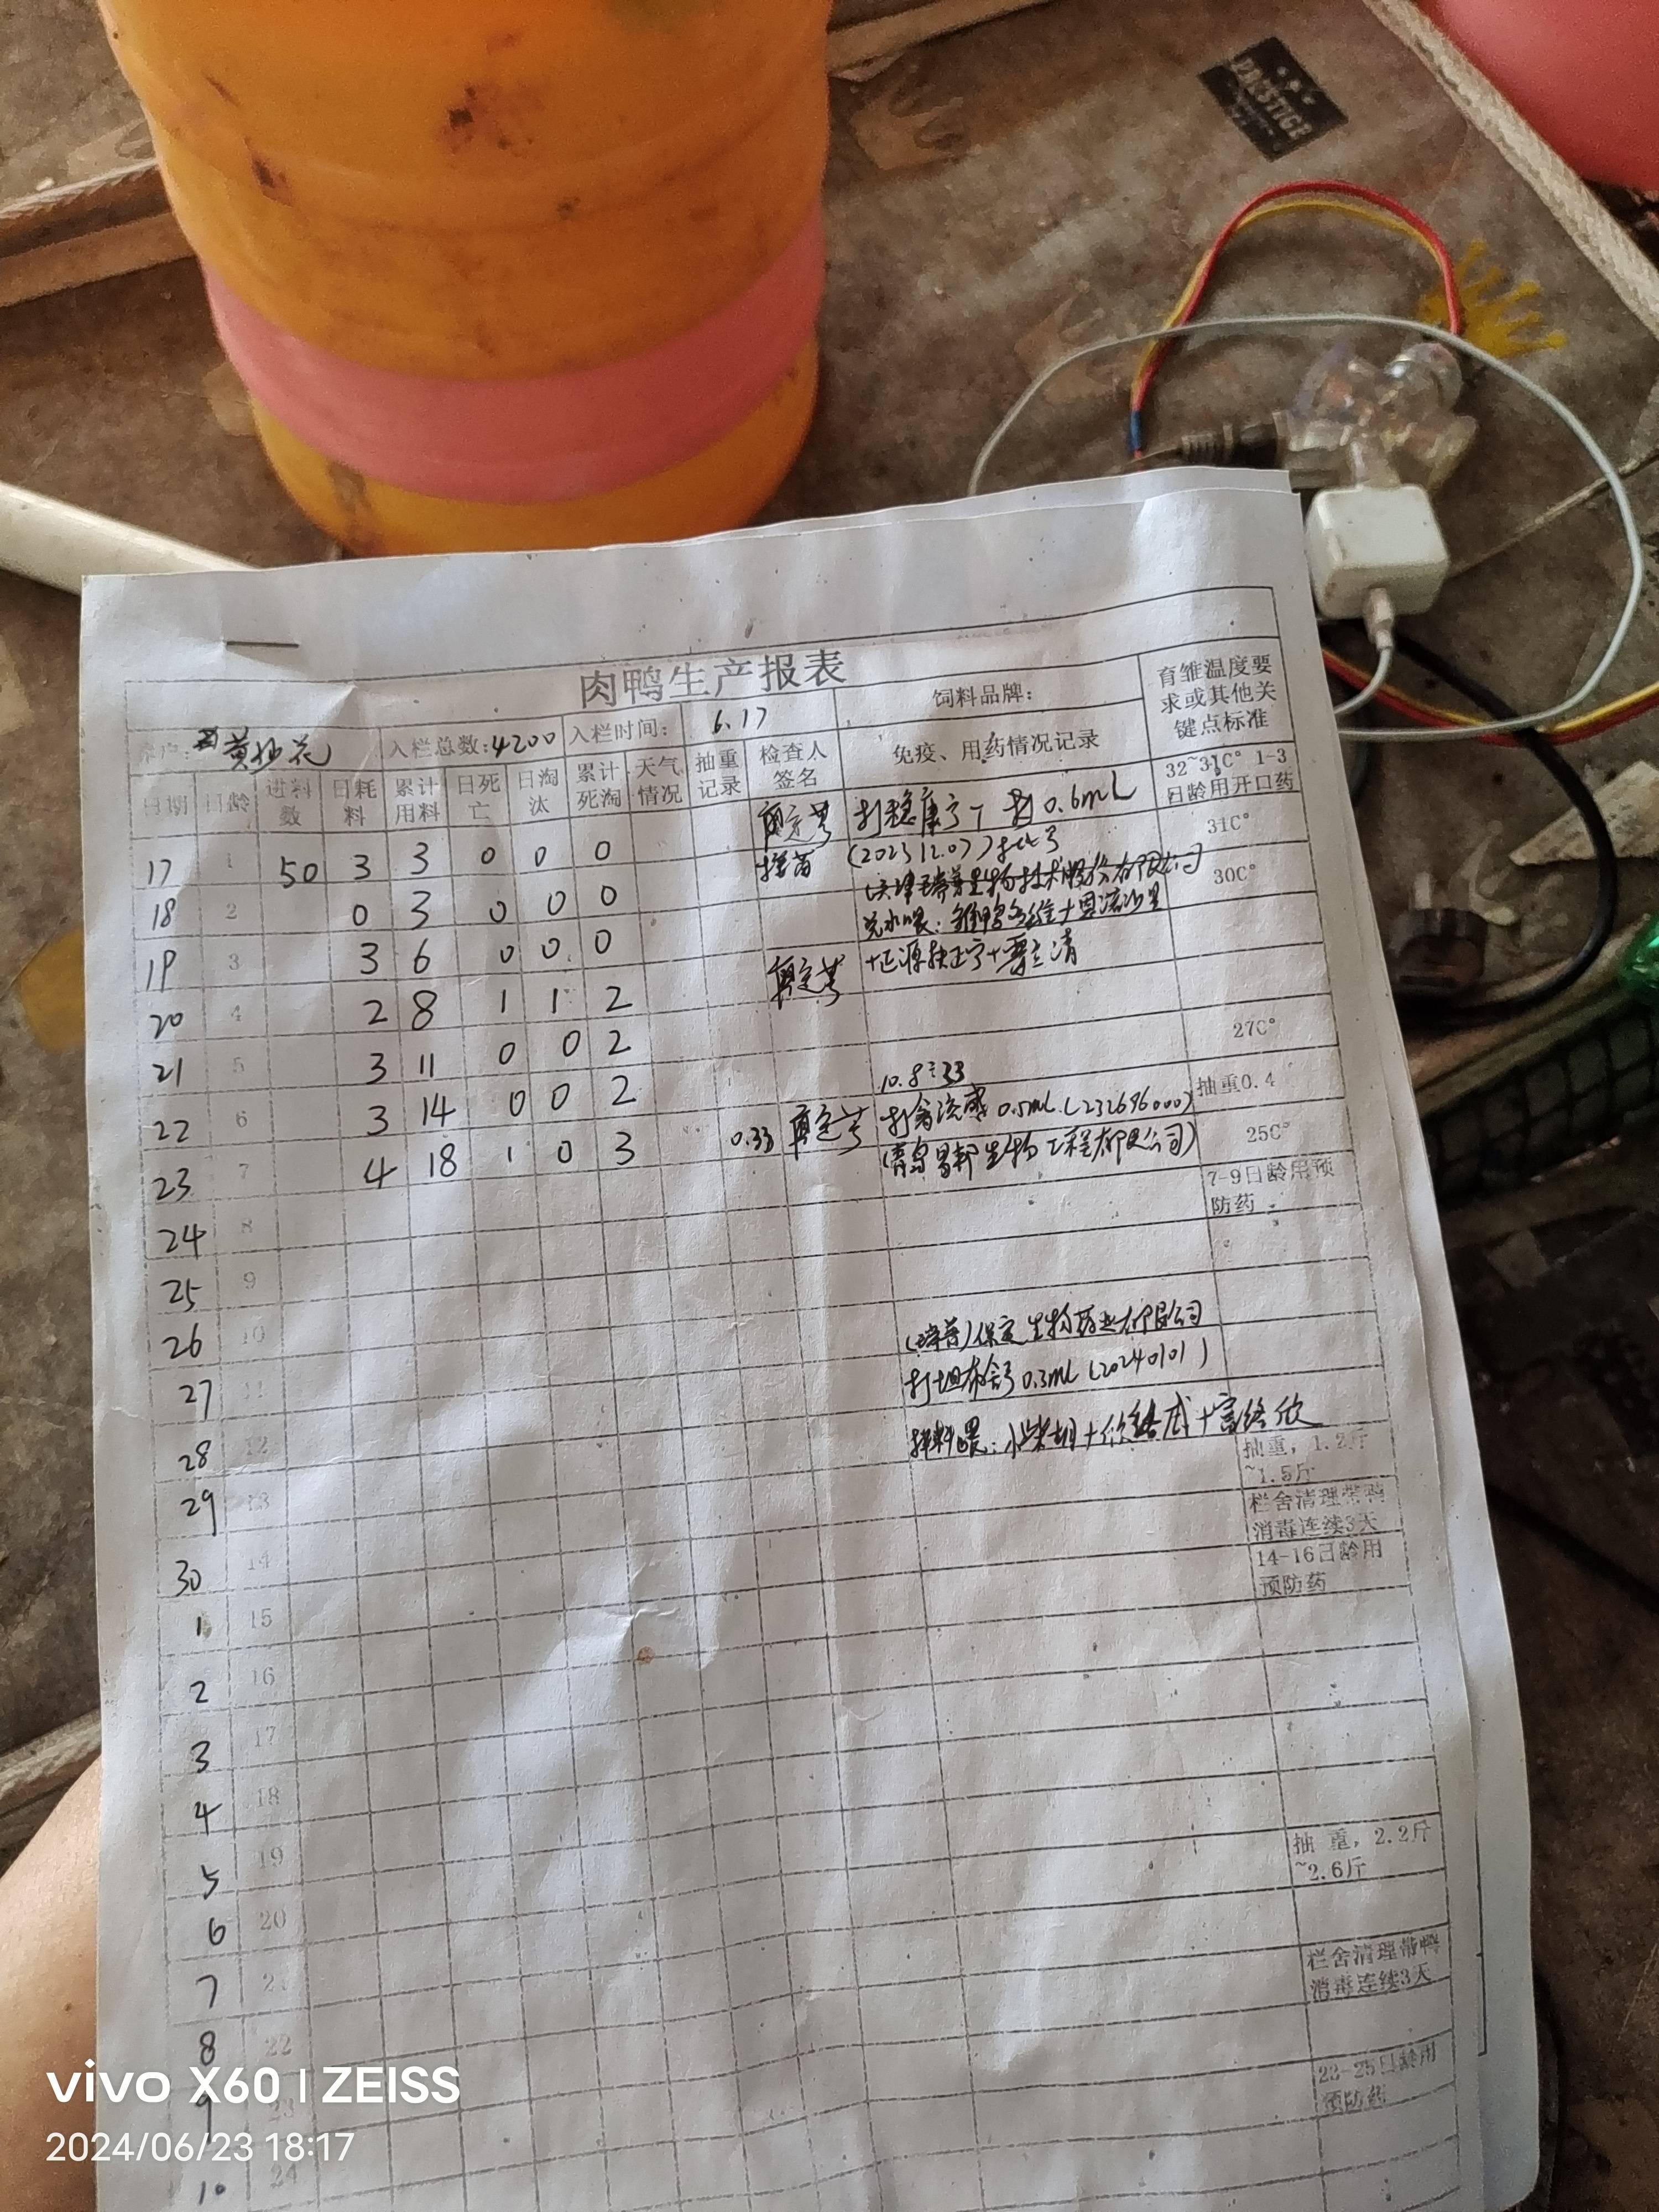 PRESTIGE
肉鸭生产报表
黄 花 入栏总数:4200 入栏时间: 6.17 饲料品牌: 育雏温度要求或其他关键点标准
日期 日龄 进料数 日耗料 累计用料 日死亡 日淘汰 累计死淘 天气情况 抽重记录 检查人签名 免疫、用药情况记录
32~31C° 1-3日龄用开口药
17 1 50 3 3 0 0 0 打稳康宁 0.6mL 31C°
18 2 0 3 0 0 0 接苗 (20231207)批号 30C°
生物技术股份有限公司
兑水喂: 雏鸭多维+恩诺沙星
19 3 3 6 0 0 0
20 4 2 8 1 1 2
21 5 3 11 0 0 2 27C°
22 6 3 14 0 0 2 10.8÷33 抽重0.4
23 7 4 18 1 0 3 0.33 打禽流感 0.5mL (232696000) 25C°
(青岛易邦生物工程有限公司)
24 8 7-9日龄用预防药
25 9
26 10
(瑞普)保定生物药业有限公司
27 11 打坦布舒 0.3mL (20240101)
28 12 拌料喂: 小柴胡+
抽重, 1.2斤~1.5斤
29 13 栏舍清理带鸭消毒连续3天
30 14 14-16日龄用预防药
1 15
2 16
3 17
4 18
5 19 抽 重, 2.2斤~2.6斤
6 20
7 21 栏舍清理带鸭消毒连续3天
8 22
9 23 23-25日龄用预防药
10 24
vivo X60 | ZEISS
2024/06/23 18:17